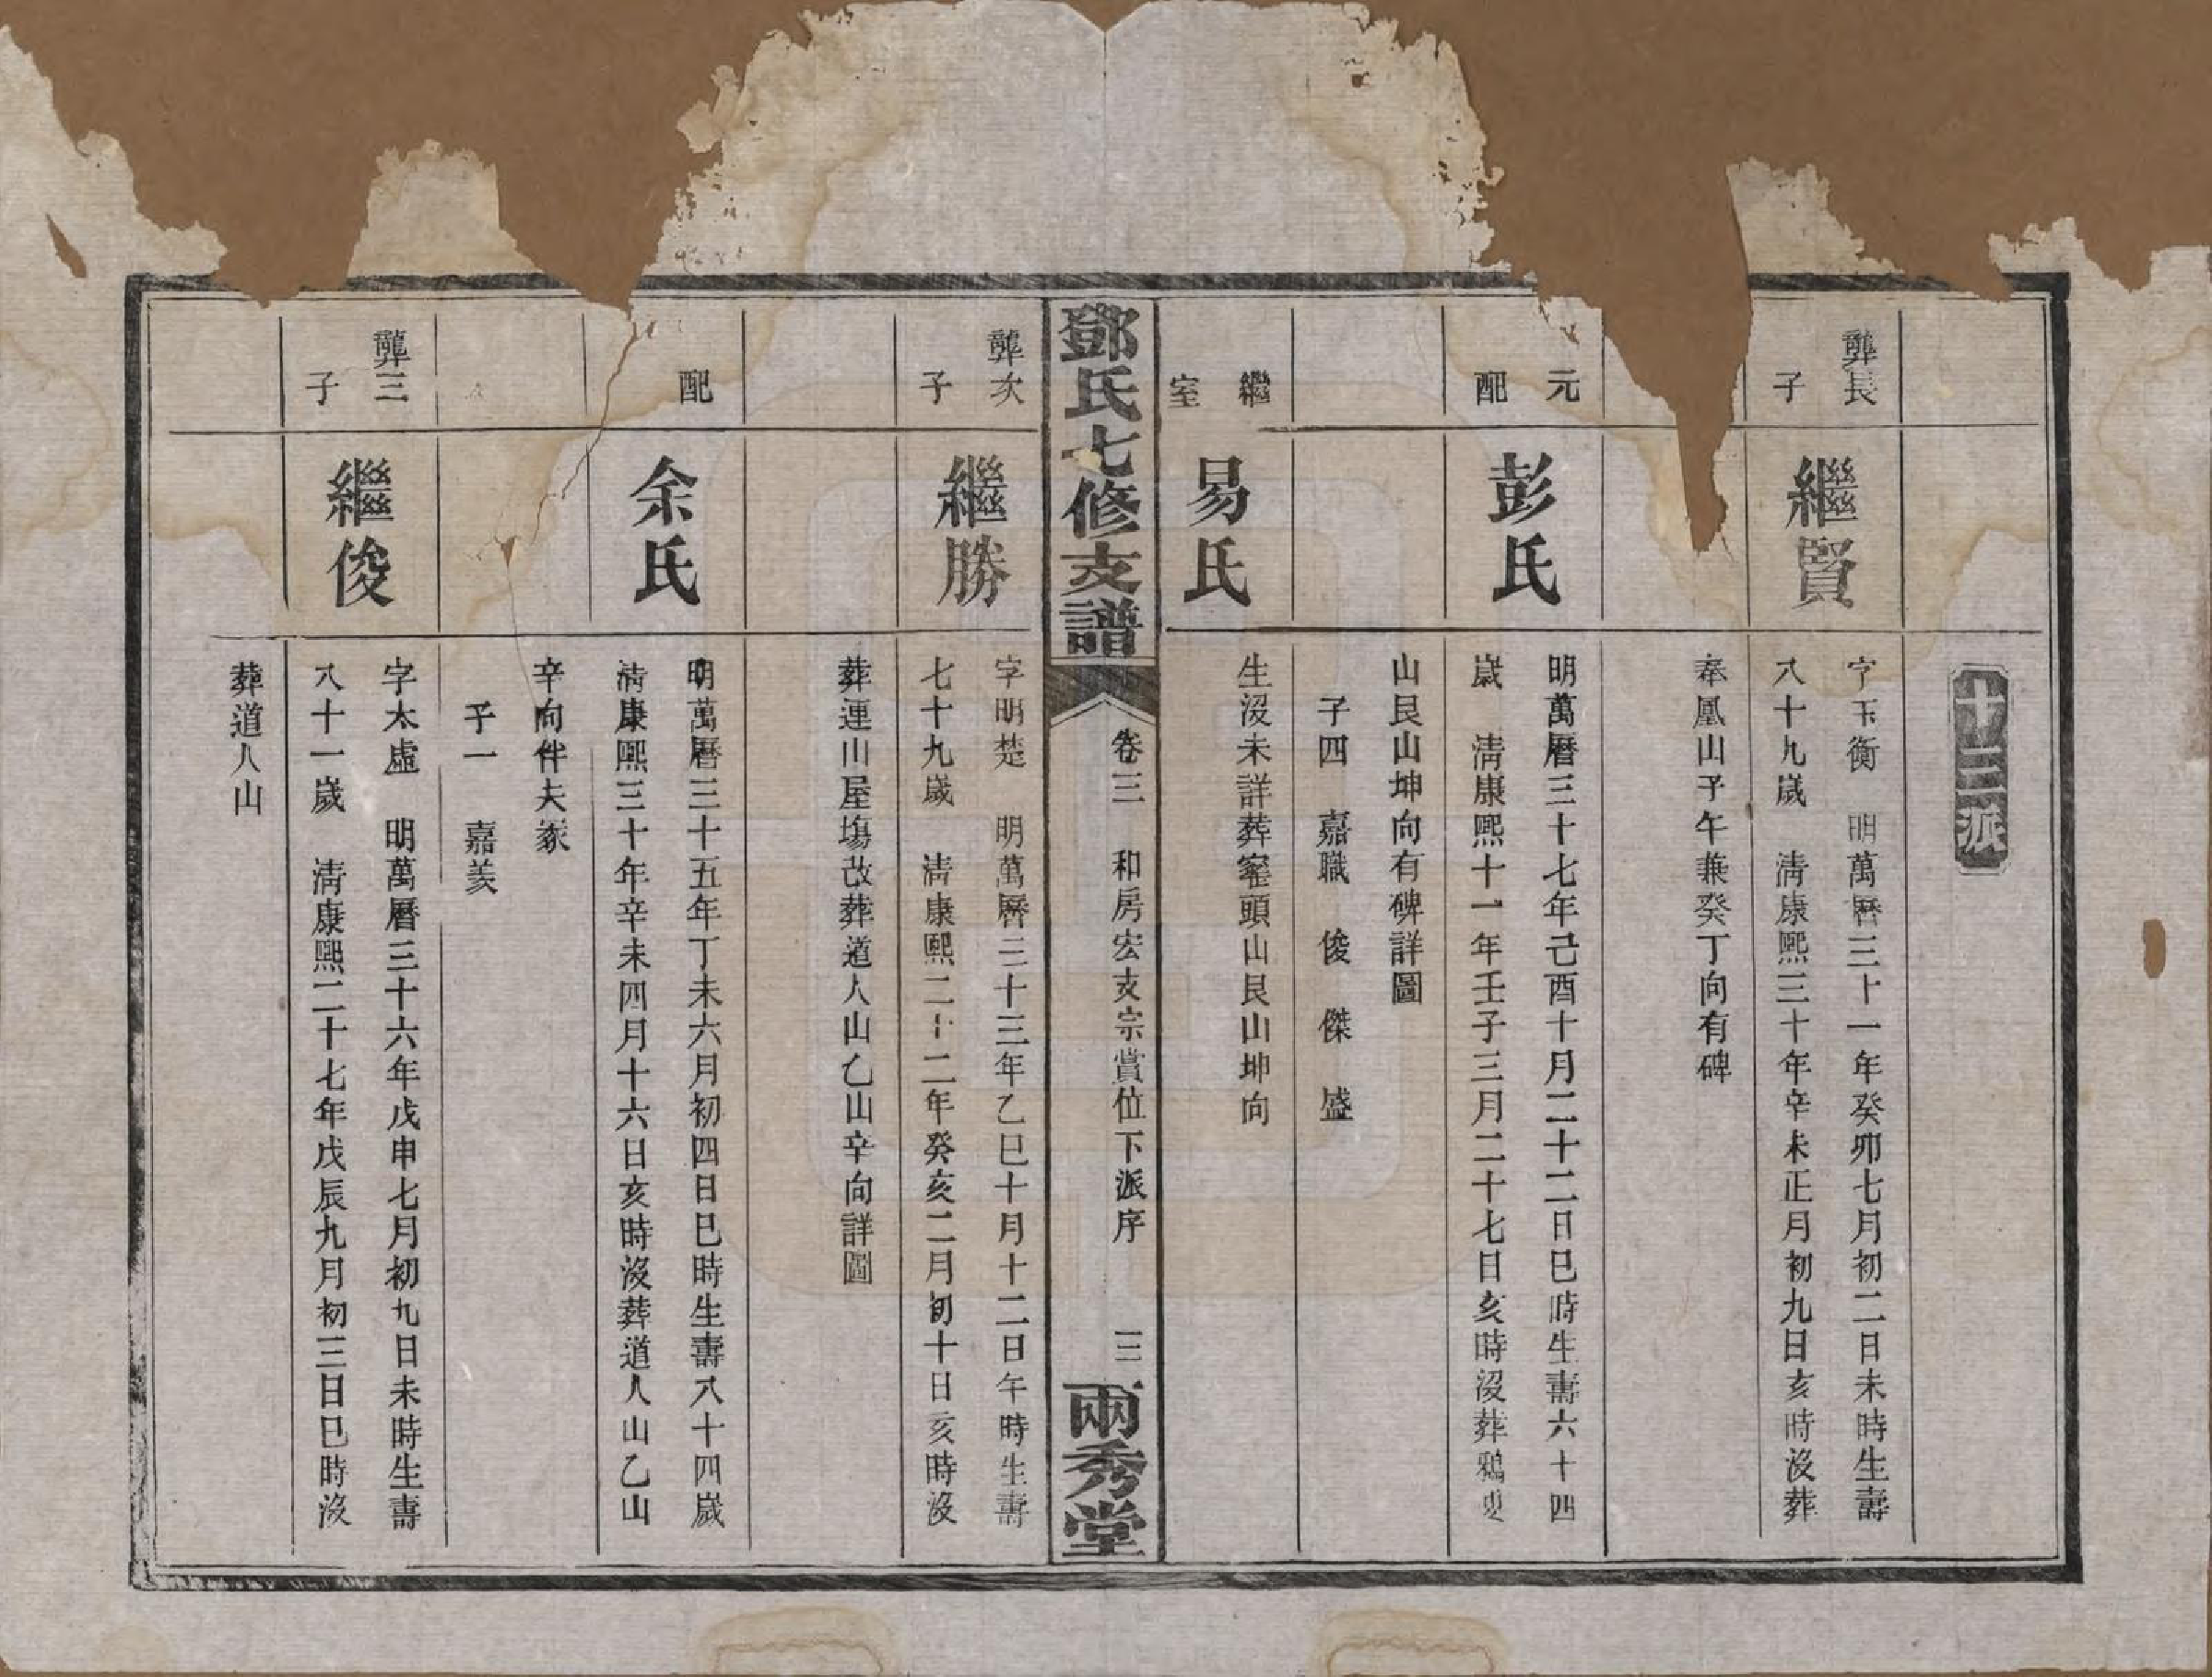 十三派
龔長子
繼賢
字玉衡　明萬曆三十一年癸卯七月初二日未時生壽
八十九歲　清康熙三十年辛未正月初九日亥時沒葬
奉凰山子午兼癸丁向有碑
元配
彭氏
明萬曆三十七年己酉十月二十二日巳時生壽六十四
歲　清康熙十一年壬子三月二十七日亥時沒葬鴉
山艮山坤向有碑詳圖
子四　嘉職　俊　傑　盛
繼室
易氏
生沒未詳葬窰頭山艮山坤向
鄧氏七修支譜
卷三　和房宏支宗賞位下派序
三
兩秀堂
龔次子
繼勝
字明楚　明萬曆三十三年乙巳十月十二日午時生壽
七十九歲　清康熙二十二年癸亥二月初十日亥時沒
葬連山屋塲改葬道人山乙山辛向詳圖
配
余氏
明萬曆三十五年丁未六月初四日巳時生壽八十四歲
清康熙三十年辛未四月十六日亥時沒葬道人山乙山
辛向伴夫冢
子一　嘉羨
龔三子
繼俊
字太虛　明萬曆三十六年戊申七月初九日未時生壽
八十一歲　清康熙二十七年戊辰九月初三日巳時沒
葬道人山